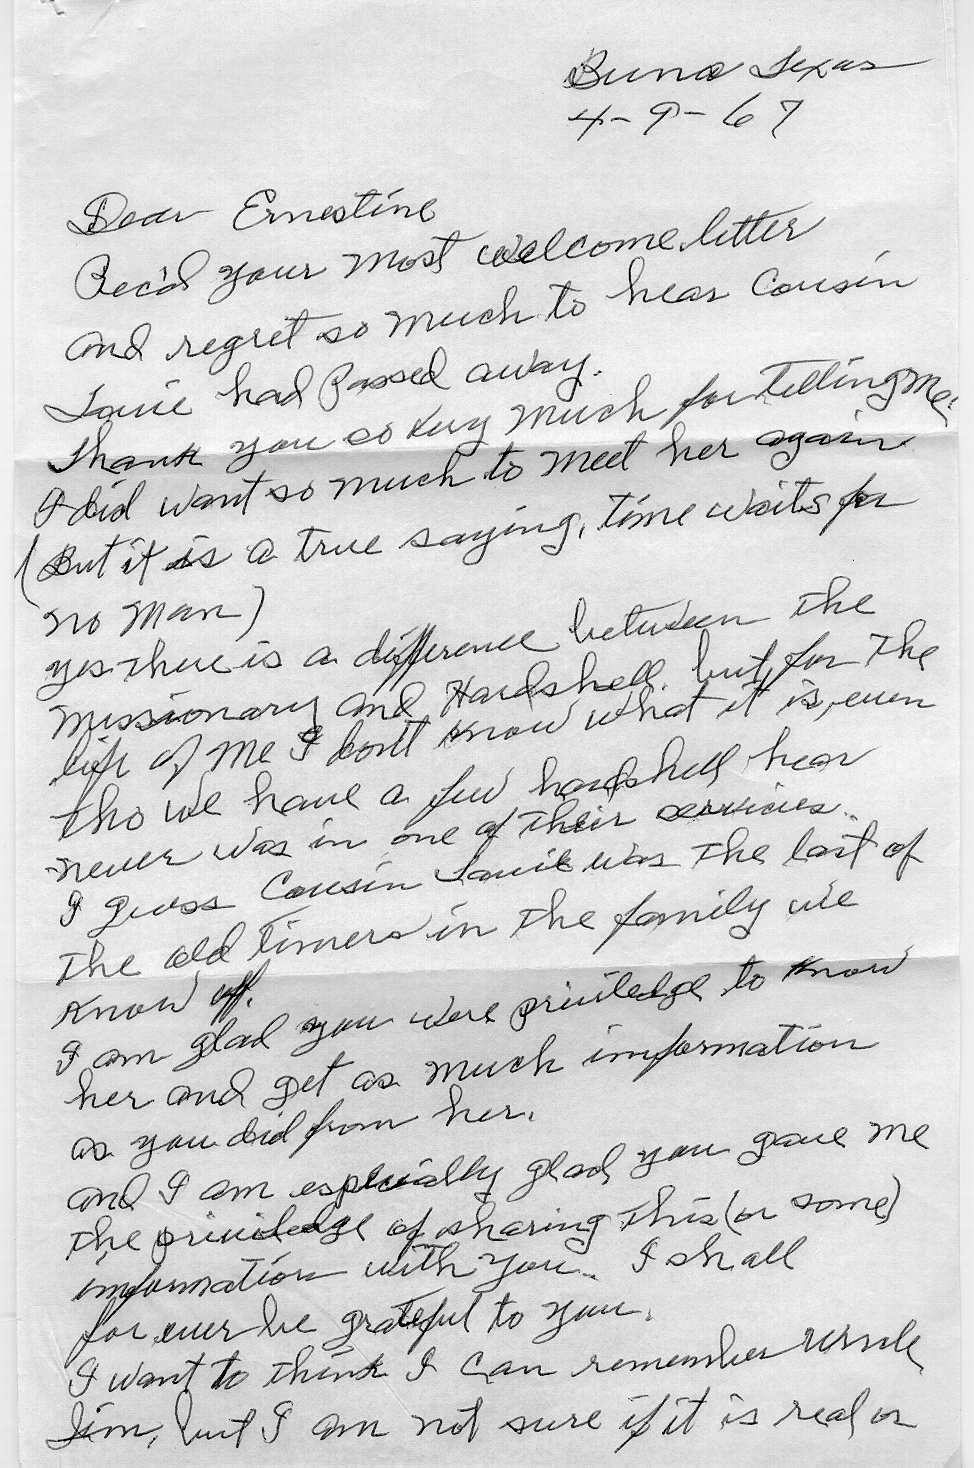 Buna Texas
4-9-67
Dear Ernestine
Rec'd your most welcome letter
and regret so much to hear Cousin
Lovie had Passed away.
Thank you so very much for Telling me,
I did want so much to meet her again
(But it is a true saying, time waits for
no man)
yes there is a difference between the
missionary and Hardshell. but, for the
life of me I don't know what it is, even
tho we have a few hardshell hear
never was in one of their services..
I guess Cousin Lovie was the last of
the old timers in the family we
know off.
I am glad you were priviledge to know
her and get as much information
as you did from her.
and I am especially glad you gave me
the priviledge of sharing this (or some)
information with you.. I shall
for ever be grateful to you.
I want to think I can remember Uncle
Jim, but I am not sure if it is real or